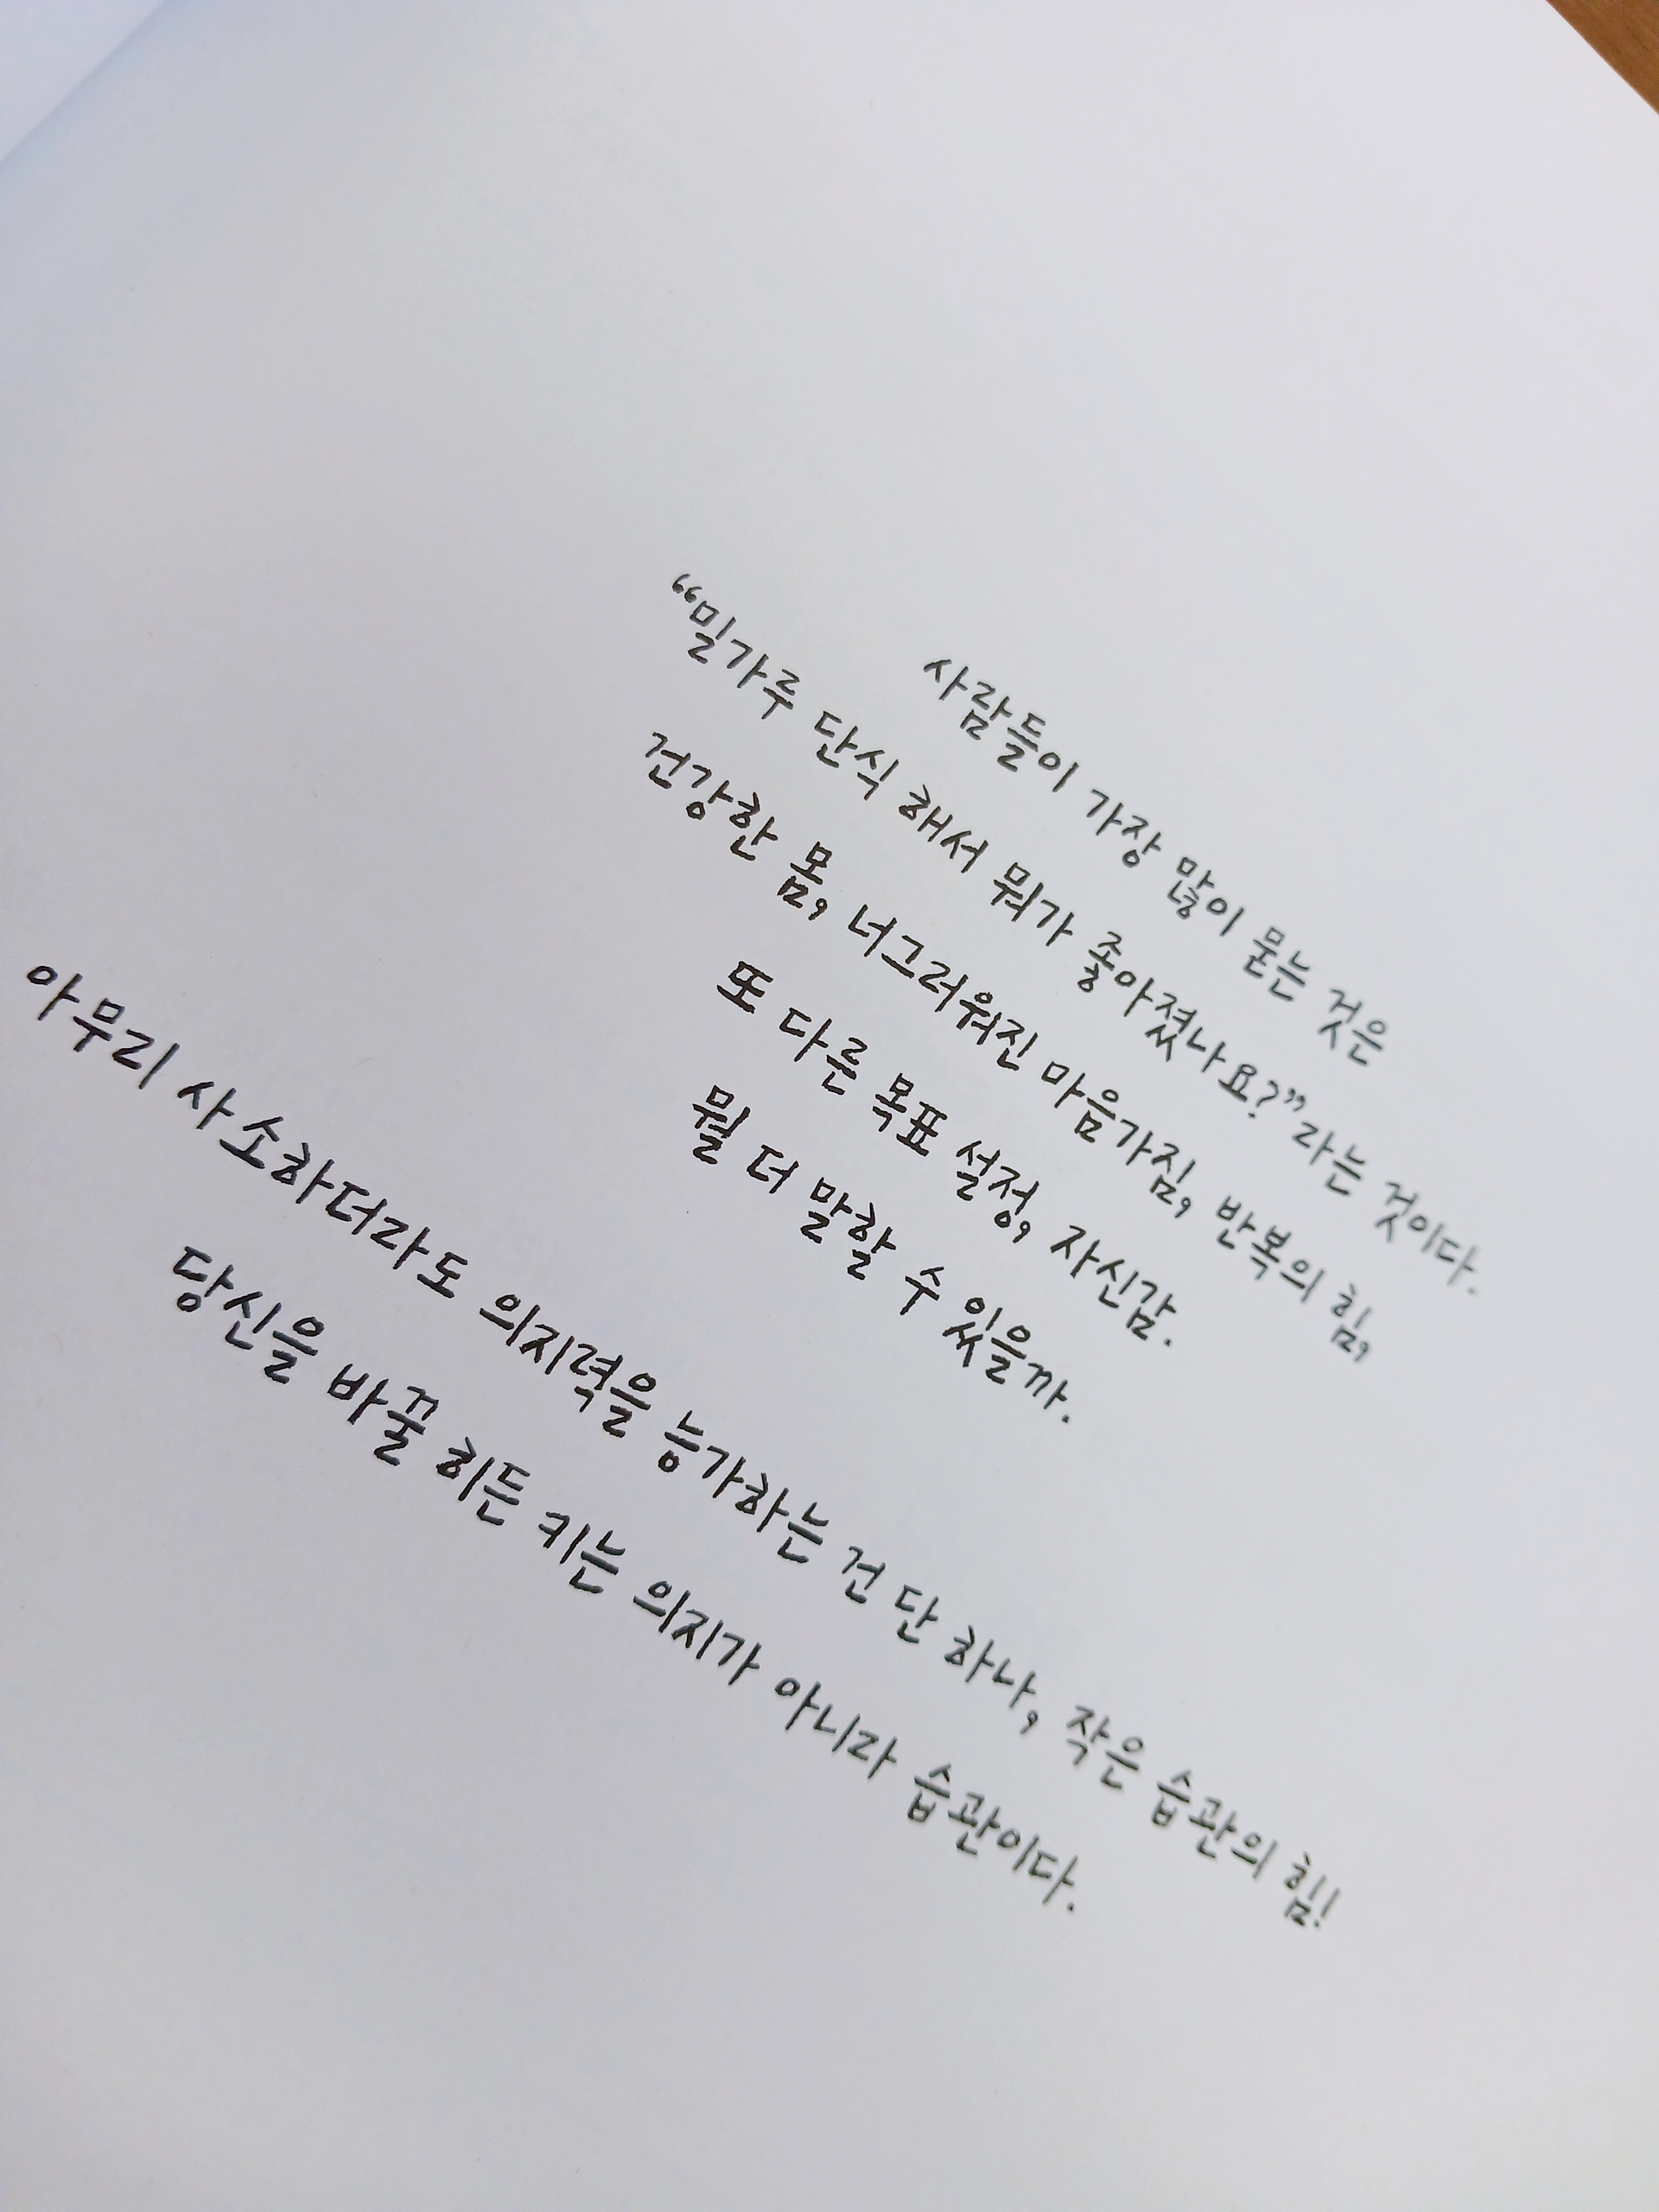 사람들이 가장 많이 묻는 것은
“밀가루 단식 해서 뭐가 좋아졌나요?”라는 것이다.
건강한 몸, 너그러워진 마음가짐, 반복의 힘,
또 다른 목표 설정, 자신감.
뭘 더 말할 수 있을까.
아무리 사소하더라도 의지력을 능가하는 건 단 하나, 작은 습관의 힘!
당신을 바꿀 히든 키는 의지가 아니라 습관이다.